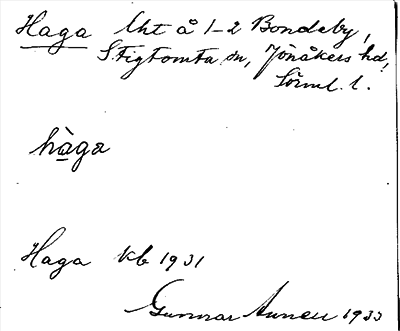 Haga lht å 1-2 Bondeby,
Stigtomta sn, Jönåkers hd,
Sörml. l.
hàga
Haga kb 1931
Gunnar 1933